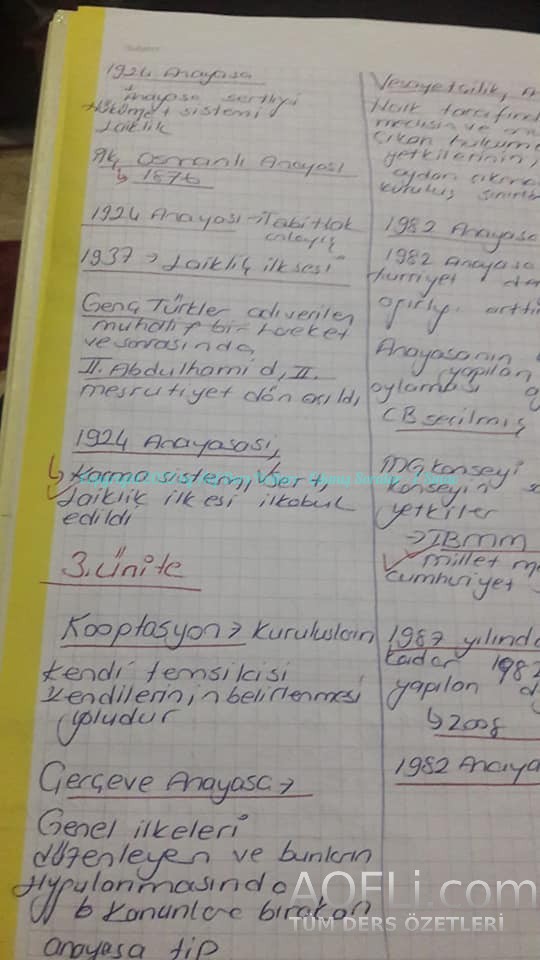 1924 Anayasa
Anayasa sertliği
Hükümet sistemi
Laiklik
İlk Osmanlı Anayası
↳ 1876
1924 Anayası → Tabitlok
anlayış
1937 → Laikliç ilksesi
Genç Türkler adıverilen
muhalif bir hareket
ve sonrasında,
II. Abdulhamid, II.
meşrutiyet dön açıldı
1924 Anayasası,
↳ Karma sistem, sert,
Laiklik ilkesi ilkabul
edildi
3. Ünite
Kooptasyon → Kuruluşların
kendi temsilcisi
kendilerinin belirlenmesi
yoludur
Çerçeve Anayasa →
Genel ilkeleri
düzenleyen ve bunların
uygulanmasında
kanunlara bırakan
anayasa tip
Vesayetçilik,
Halk tarafınd
meclisin ve
çıkan hüküm
yetkilerinin,
aydan çıkma
kuruluş sınırlı
1982 Anayasa
1982 Anayasa
Hürriyet
ağırlığı arttı
Anayasanın
yapılan
oylaması
CB seçilmiş
MG konseyi
konseyin
yetkiler
→ TBMM
millet m
cumhuriyet
1987 yılında
kadar 1982
yapılan d
↳ 2008
1982 Anaya
AOFLi.com
TÜM DERS ÖZETLERİ